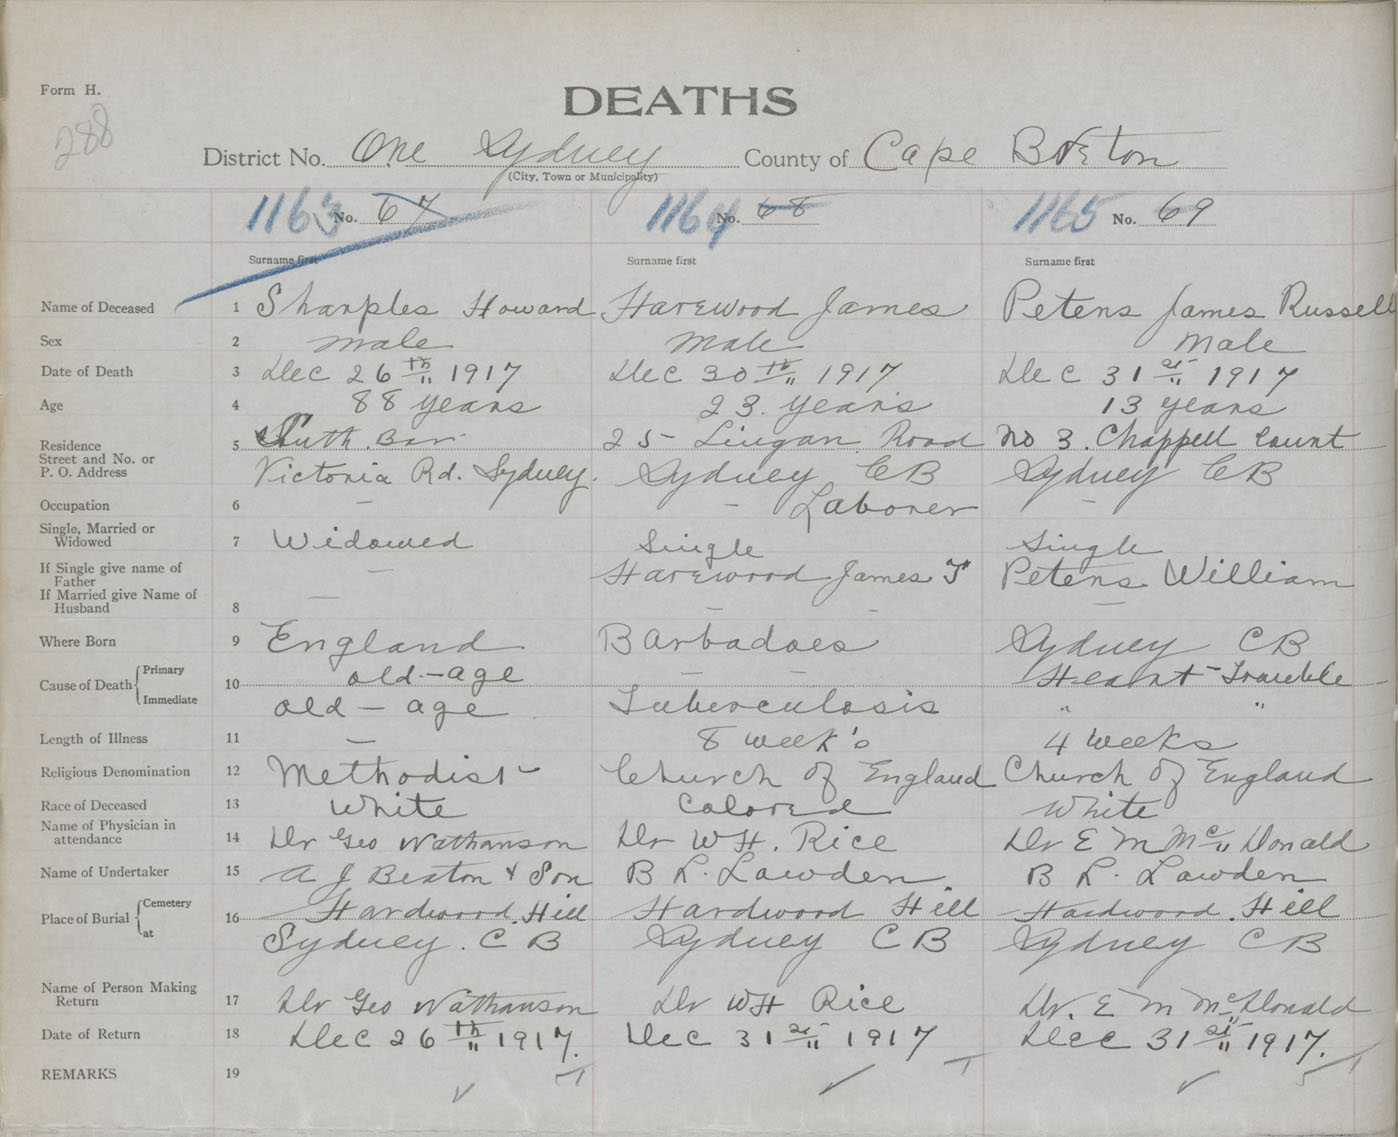 Form H.
288
DEATHS
District No. One Sydney County of Cape Breton
(City, Town or Municipality)
1163 No. 67 1164 No. 68 1165 No. 69
Surname first Surname first Surname first
Name of Deceased 1 Sharples Howard Harewood James Peters James Russell
Sex 2 male male male
Date of Death 3 Dec 26th 1917 Dec 30th 1917 Dec 31st 1917
Age 4 88 years 23 years 13 years
Residence
Street and No. or
P. O. Address
5 South Bar 25 Lingan Road no 3. Chappell Court
Victoria Rd. Sydney. Sydney CB Sydney CB
Occupation 6 — - Laborer
Single, Married or
Widowed 7 Widowed Single Single
If Single give name of
Father — Harewood James T Peters William
If Married give Name of
Husband 8 — — - —
Where Born 9 England Barbadoes Sydney CB
Cause of Death Primary 10 old-age — — Heart-Trouble
Immediate old-age Tuberculosis " "
Length of Illness 11 — 8 week's 4 weeks
Religious Denomination 12 Methodist Church of England Church of England
Race of Deceased 13 White Colored White
Name of Physician in
attendance 14 Dr Geo Nathanson Dr W H. Rice Dr E M McDonald
Name of Undertaker 15 A J Beaton & Son B L. Lawden B L. Lawden
Place of Burial Cemetery 16 Hardwood Hill Hardwood Hill Hardwood Hill
at Sydney. C B Sydney C B Sydney C B
Name of Person Making
Return 17 Dr Geo Nathanson Dr W H Rice Dr. E M McDonald
Date of Return 18 Dec 26th 1917. Dec 31st 1917 Dec 31st 1917.
REMARKS 19